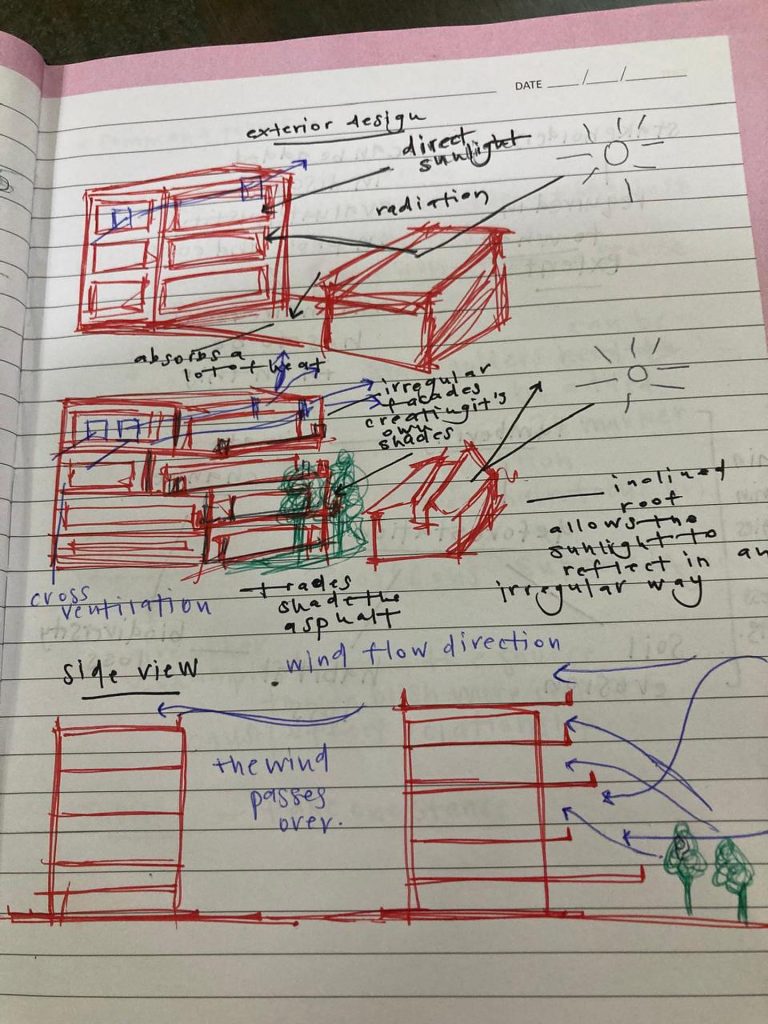 DATE __/__/__
exterior design
direct
sunlight
radiation
absorbs a
lot of heat
irregular
facades
creating it's
own
shades
inclined
roof
allows the
sunlight to
reflect in an
irregular way
cross
ventilation
shade the
asphalt
wind flow direction
side view
the wind
passes
over.